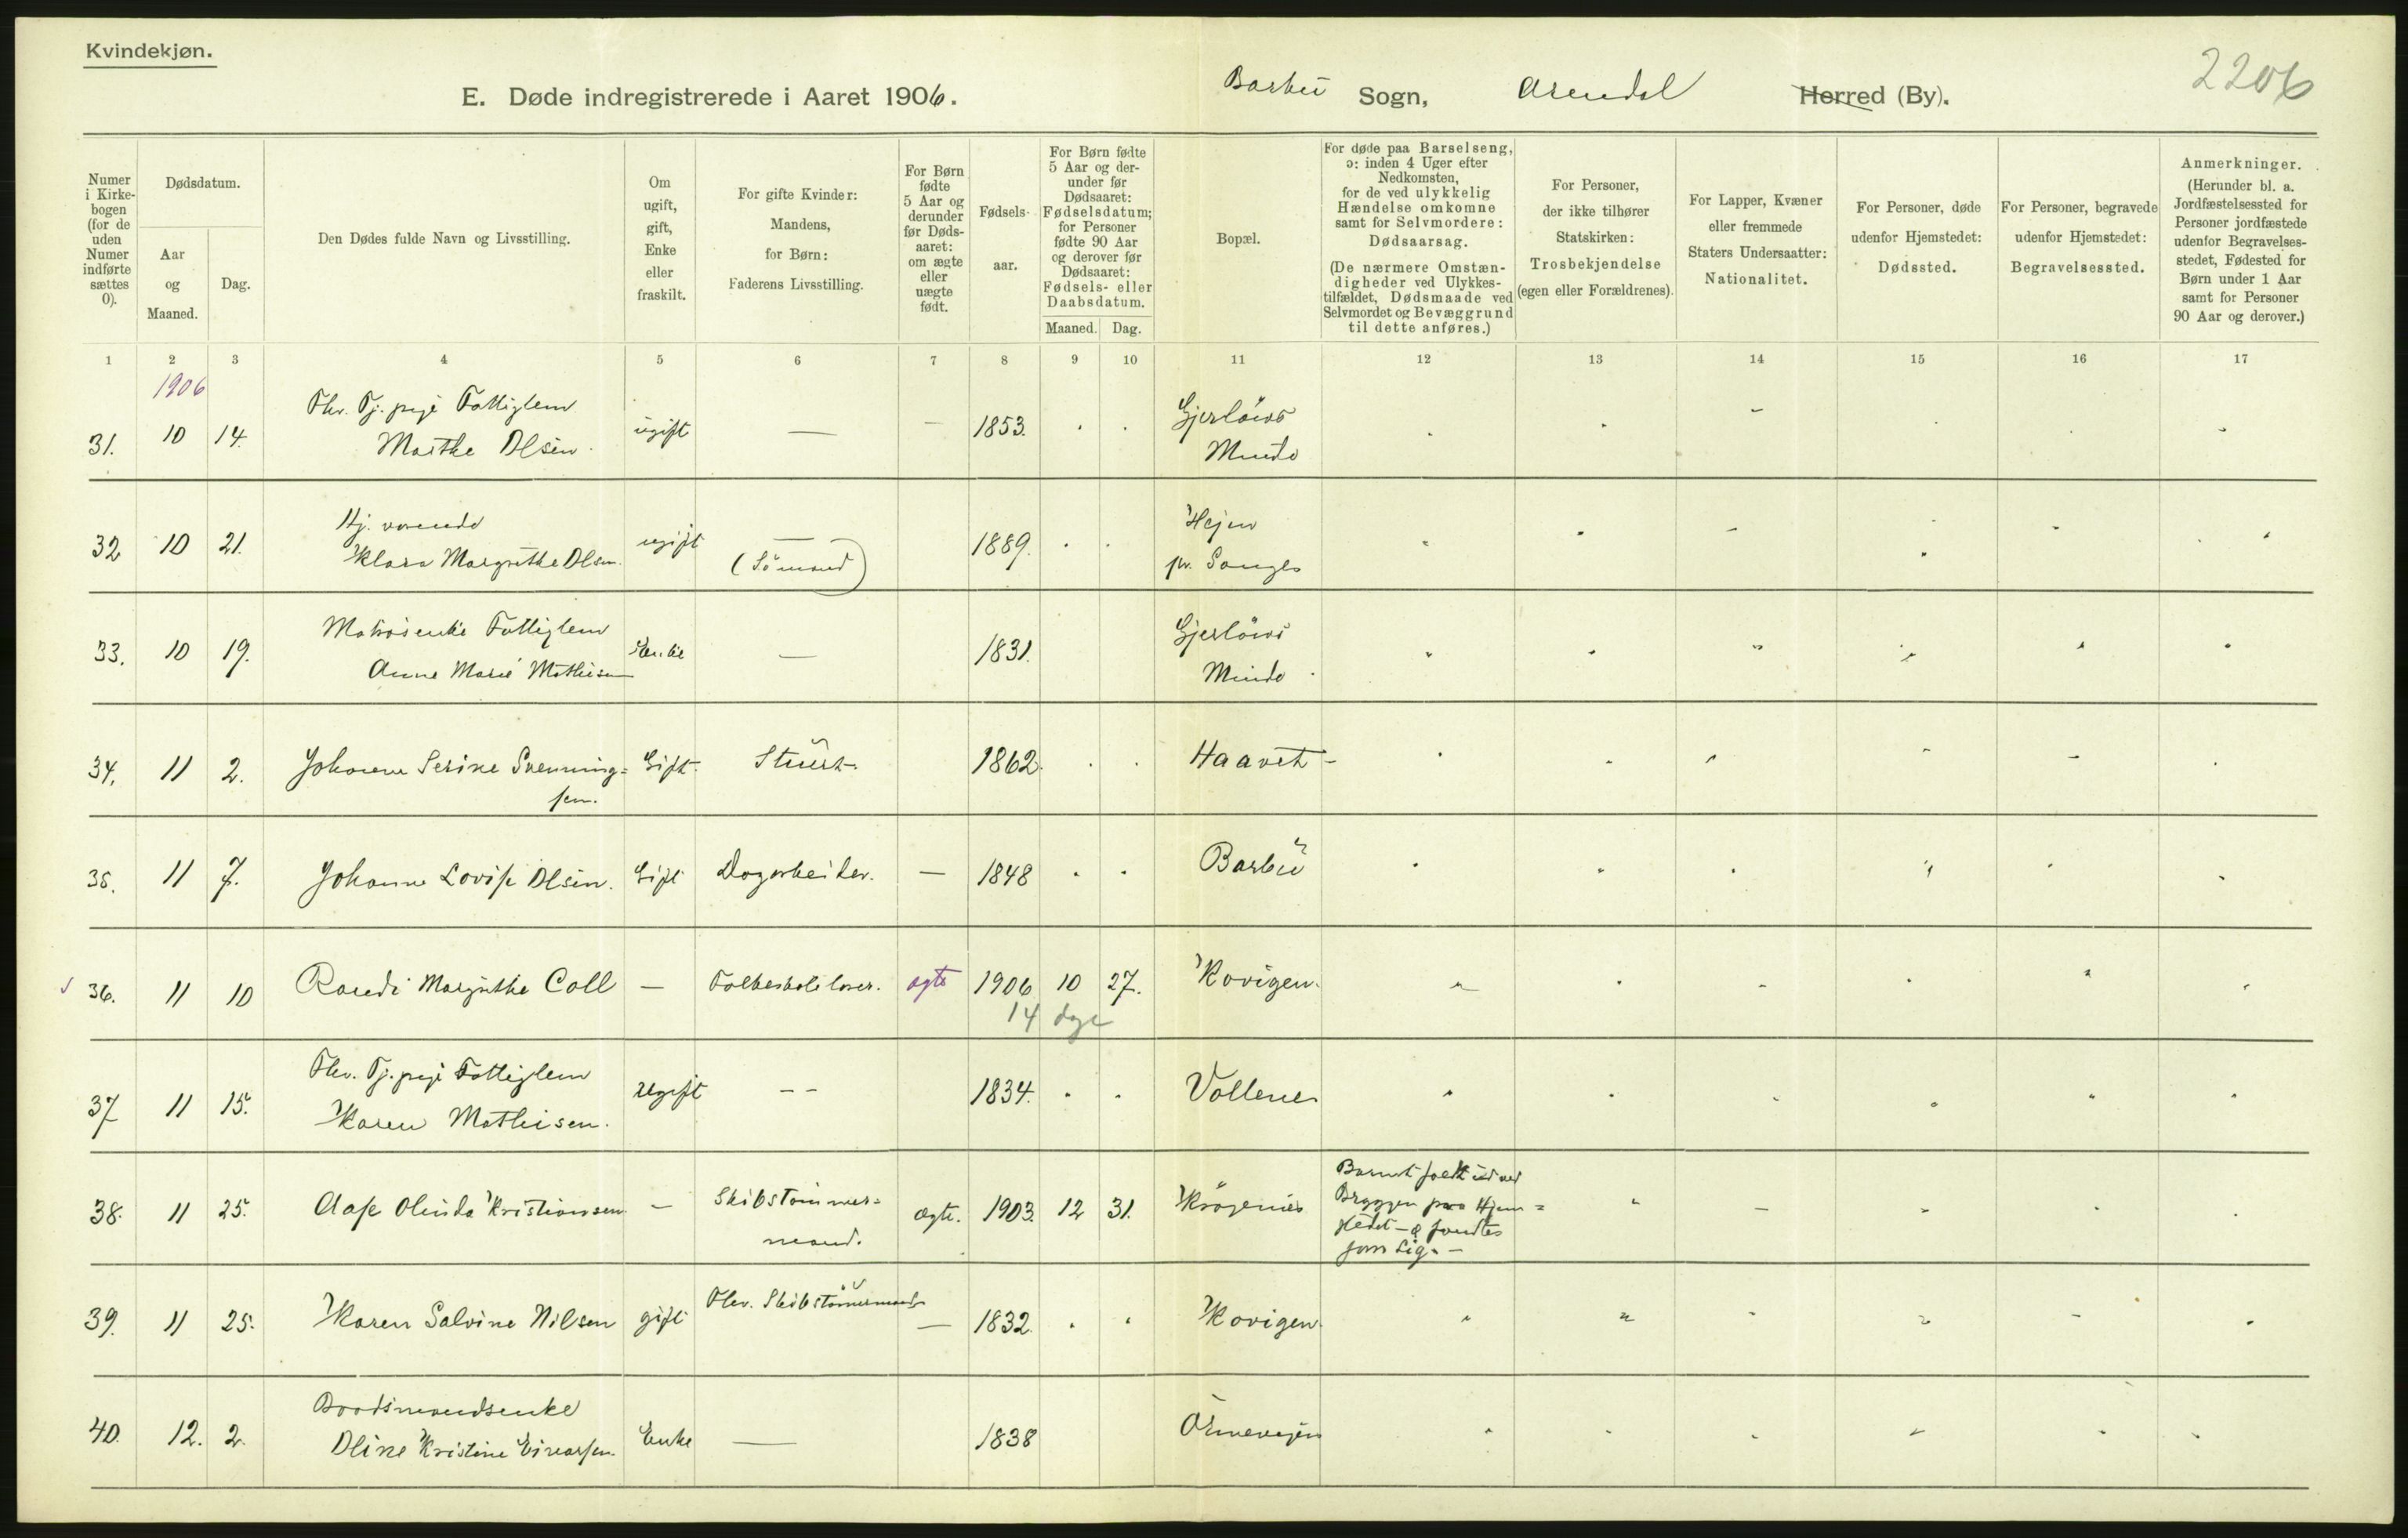 Kvindekjøn.
E. Døde indregistrerede i Aaret 1906.
Barbu Sogn, Arendal Herred (By).
2206
Numer i Kirkebogen (for de uden Numer indførte sættes 0).
Dødsdatum.
Aar og Maaned.
Dag.
Den Dødes fulde Navn og Livsstilling.
Om ugift, gift, Enke eller fraskilt.
For gifte Kvinder: Mandens, for Børn: Faderens Livsstilling.
For Børn fødte 5 Aar og derunder før Dødsaaret: om ægte eller uægte født.
Fødselsaar.
For Børn fødte 5 Aar og derunder før Dødsaaret: Fødselsdatum; for Personer fødte 90 Aar og derover før Dødsaaret: Fødsels- eller Daabsdatum.
Maaned. Dag.
Bopæl.
For døde paa Barselseng, ɔ: inden 4 Uger efter Nedkomsten, for de ved ulykkelig Hændelse omkomne samt for Selvmordere: Dødsaarsag. (De nærmere Omstændigheder ved Ulykkestilfældet, Dødsmaade ved Selvmordet og Bevæggrund til dette anføres.)
For Personer, der ikke tilhører Statskirken: Trosbekjendelse (egen eller Forældrenes).
For Lapper, Kvæner eller fremmede Staters Undersaatter: Nationalitet.
For Personer, døde udenfor Hjemstedet: Dødssted.
For Personer, begravede udenfor Hjemstedet: Begravelsessted.
Anmerkninger. (Herunder bl. a. Jordfæstelsessted for Personer jordfæstede udenfor Begravelsesstedet, Fødested for Børn under 1 Aar samt for Personer 90 Aar og derover.)
1 2 3 4 5 6 7 8 9 10 11 12 13 14 15 16 17
1906
Fhv. Tj. pige Fattiglem
31. 10 14. Marthe Olsen. ugift — — 1853. Gjerløws Minde
Hj. værende
32 10 21. Klara Margrethe Olsen. ugift — (Sømand) 1889. Hejen pr. Songe
Matrosenke Fattiglem
33. 10 19. Anne Marie Mathisen Enke — 1831. Gjerløws Minde
34. 11 2. Johanne Serine Svenning= Gift. Stuert. 1862. Haavet
sen.
35. 11 7. Johanne Lovise Olsen. Gift Dagarbeider. — 1848 Barbu
36. 11 10 Randi Margrethe Coll — Folkeskolelærer. ægte 1906 10 27. Kovigen.
14 dage
Fhv. Tj. pige Fattiglem
37 11 15. Karen Mathisen. Ugift - - 1834. Vollene
38. 11 25. Aase Olinda Kristiansen — Skibstømmer= mand. ægte. 1903. 12 31. Krøgenes
Barnet faldt ud ved
Bryggen paa Hjem=
stedet – & fandtes
som Lig. –
39. 11 25. Karen Salvine Nilsen gift Fhv. Skibstømmermand — 1832. Kovigen.
Baadsmandsenke
40. 12. 2. Oline Kristine Einarsen. Enke — 1838